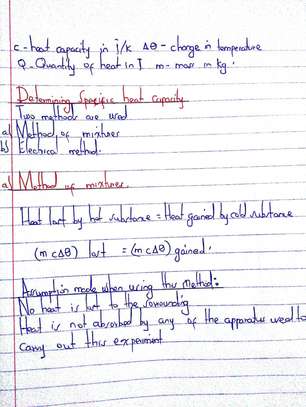 c - heat capacity in J/k Δθ - change in temperature
Q - Quantity of heat in J m - mass in kg.
Determining Specific heat capacity
Two methods are used
a) Method of mixtures
b) Electrical method.
a) Method of mixtures.
Heat lost by hot substance = Heat gained by cold substance
(m c Δθ) lost = (m c Δθ) gained.
Assumption made when using this method:
No heat is lost to the surrounding
Heat is not absorbed by any of the apparatus used to
Carry out this experiment